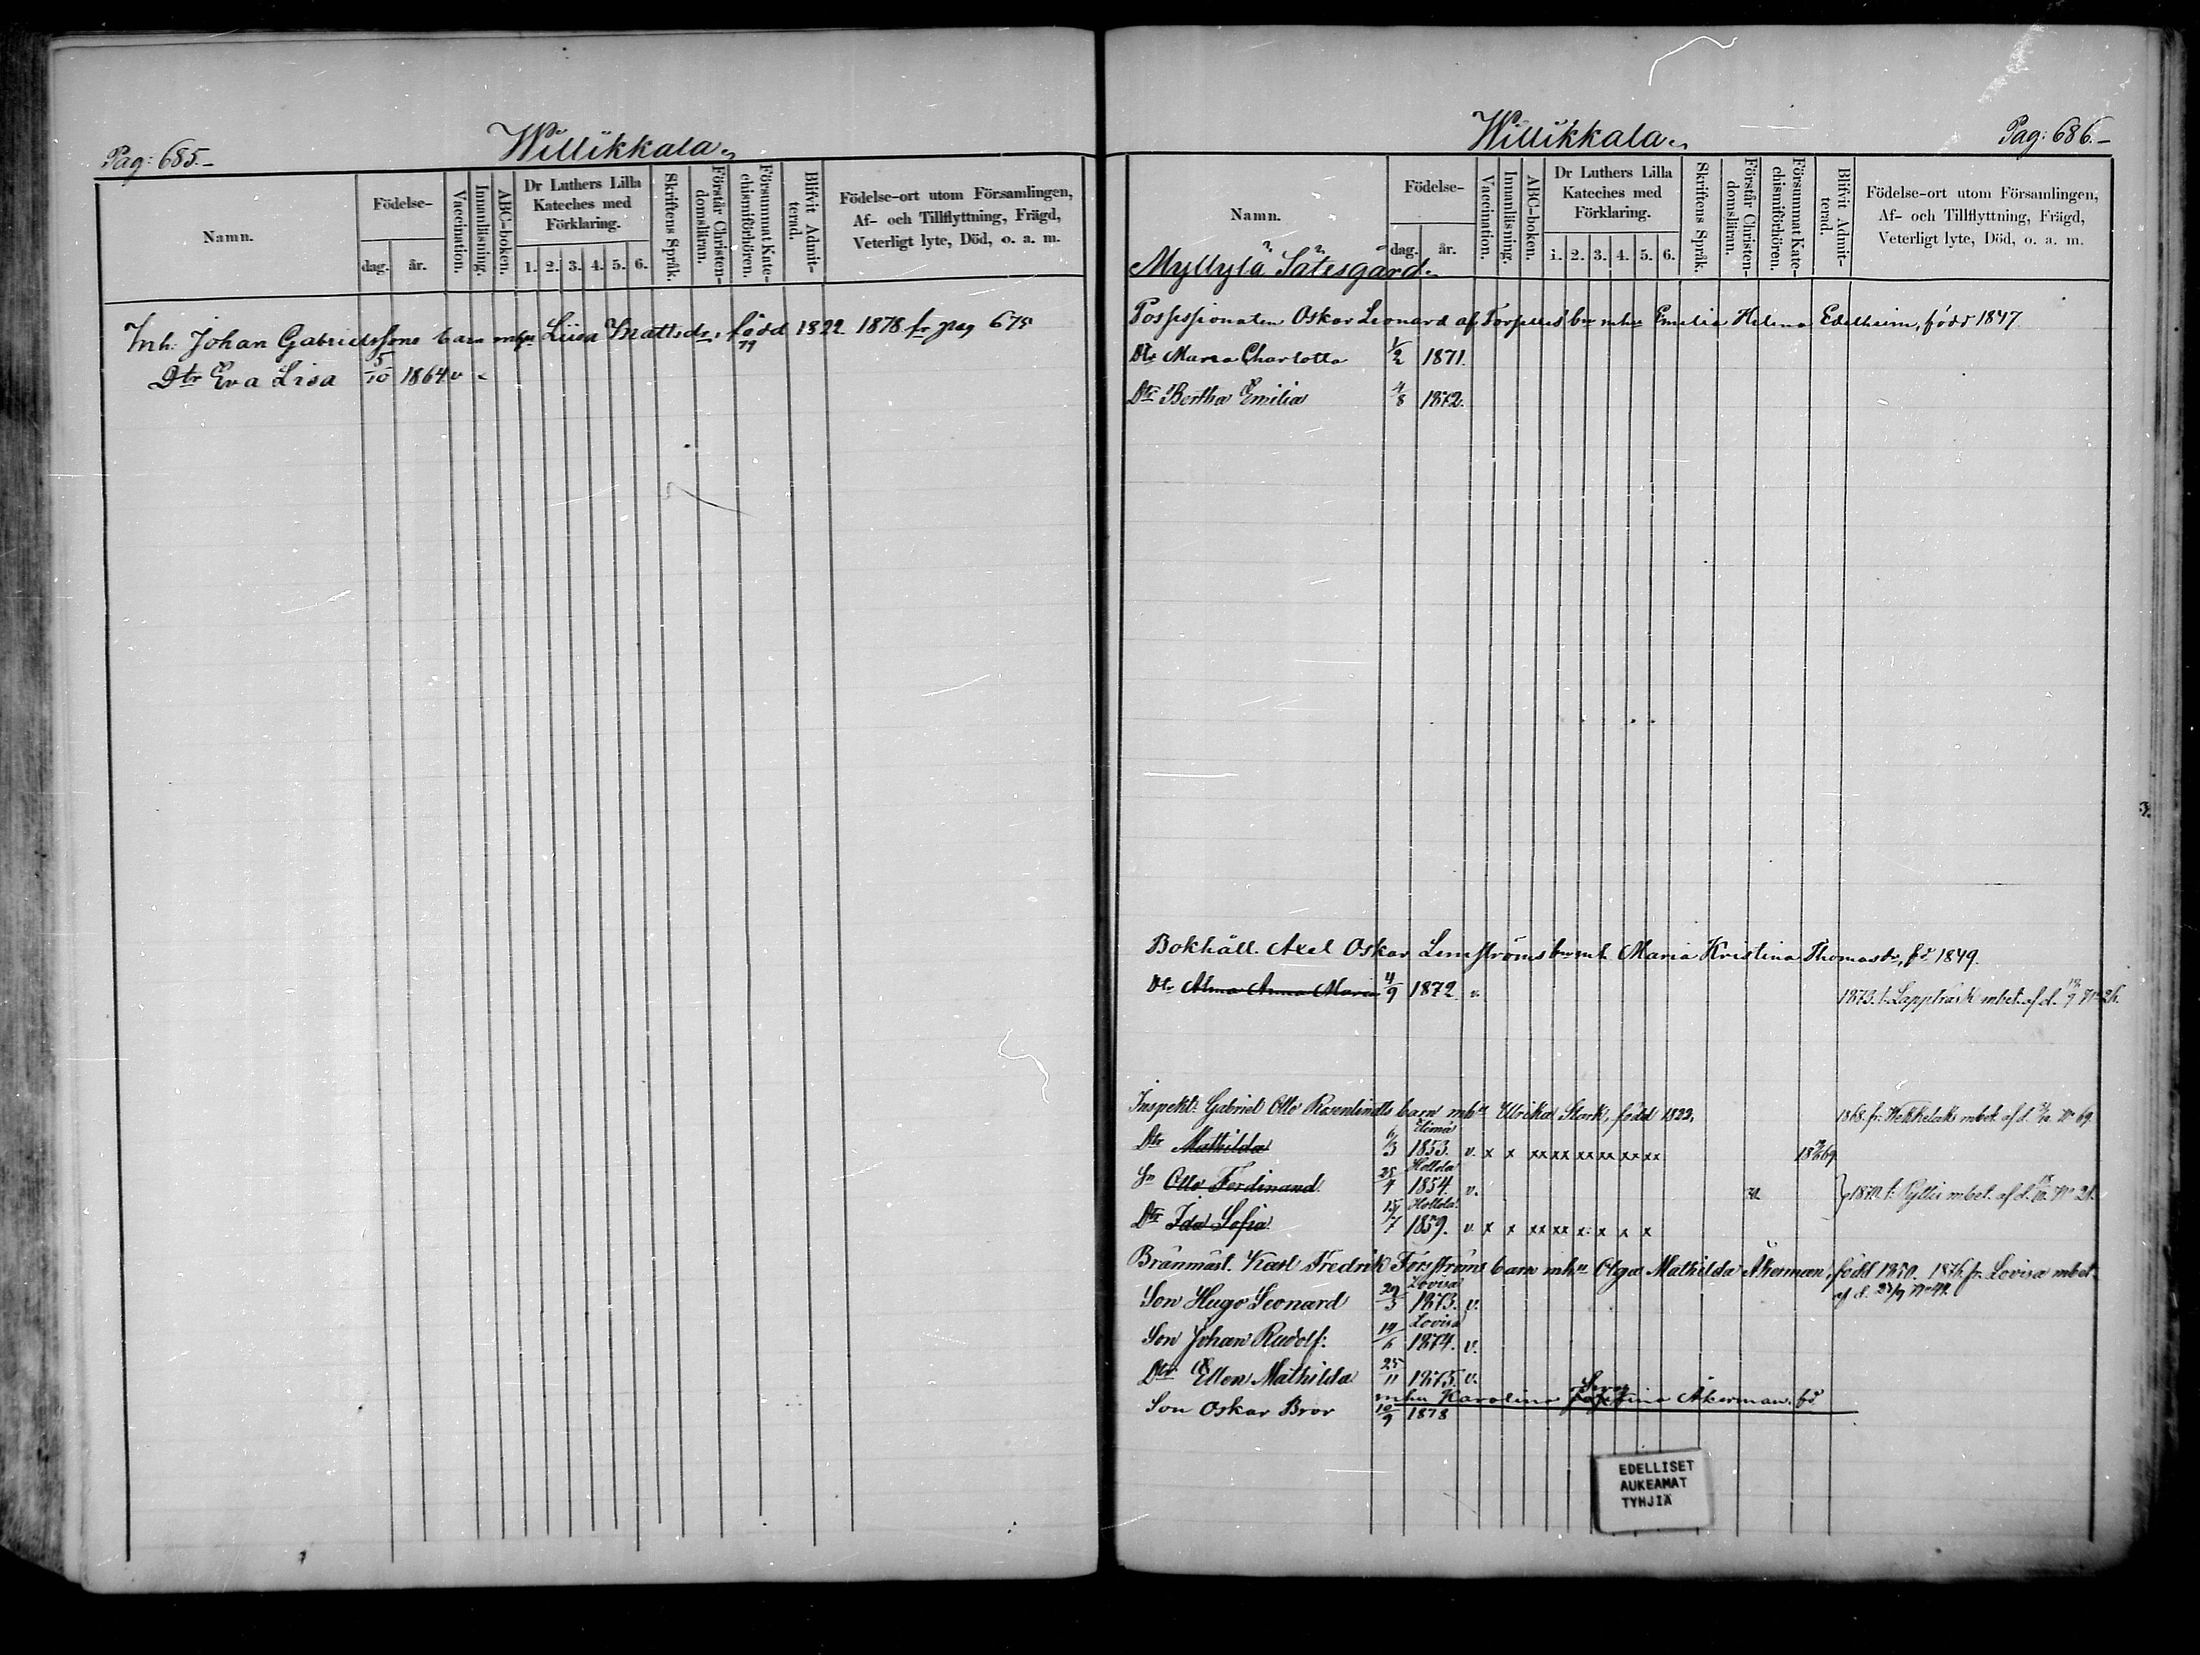 Pag: 685.-
Willikkala.
Namn.
Födelse-
dag.
år.
Vaccination.
Innanläsning.
ABC-boken.
Dr Luthers Lilla
Kateches med
Förklaring.
1. 2. 3. 4. 5. 6.
Skriftens Språk.
Förstår Christen-
domsläran.
Försummat Kate-
chismiförhören.
Blifvit Admit-
terad.
Födelse-ort utom Församlingen,
Af- och Tillflyttning, Frägd,
Veterligt lyte, Död, o. a. m.
Inh. Johan Gabrielssons barn mhn Liisa Mattsdr, född 1822 1878 fr pag 675
Dtr Eva Lisa 5/10 1864 v
Willikkala.
Pag: 686.-
Namn.
Födelse-
dag.
år.
Vaccination.
Innanläsning.
ABC-boken.
Dr Luthers Lilla
Kateches med
Förklaring.
1. 2. 3. 4. 5. 6.
Skriftens Språk.
Förstår Christen-
domsläran.
Försummat Kate-
chismiförhören.
Blifvit Admit-
terad.
Födelse-ort utom Församlingen,
Af- och Tillflyttning, Frägd,
Veterligt lyte, Död, o. a. m.
Myllylä Sätesgård.
Possessionaten Oskar Leonard af Forselles brn mhu Emelia Helena Edelheim, född 1847
Dtr Maria Charlotta 1/2 1871.
Dtr Bertha Emilia 4/8 1872.
Bokhåll. Axel Oskar Lenströms brn mh. Maria Kristina Thomasdr, fd 1849.
Dtr Alma Anna Maria 4/9 1872 v. 1873 t. Lappträsk mbet. af d. No 26.
Inspekt. Gabriel Otto Rosenlindts barn mhu Ulrika Stark, född 1822, 1868 fr. Wekkelaks mbet af d. No 69.
Elimä
Dtr Mathilda 6/3 1853. v. x x xx xx xx xx xx xx 1869
Hollola
Sn Otto Ferdinand 25/4 1854. v. 1870 t. Pyttis mbet. af d. No 21.
Hollola
Dtr Ida Sofia 1859. v. x x xx xx x x x x
Bränmäst. Karl Fredrik Forsströms barn mhu Olga Mathilda Åkerman, född 1850. 1876 fr. Lovisa mbet
af d. No 44.
Lovisa
Son Hugo Leonard 29/3 1873. v.
Lovisa
Son Johan Rudolf. 19/6 1874. v.
Dtr Ellen Mathilda 25/11 1875. v.
mhu Karolina Åkerman. fd
Son Oskar Bror 10/9 1878
EDELLISET
AUKEAMAT
TYHJIÄ